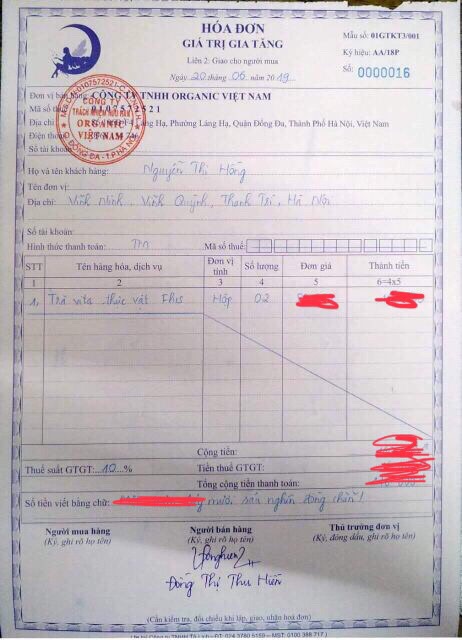 HÓA ĐƠN
GIÁ TRỊ GIA TĂNG
Liên 2: Giao cho người mua
Ngày 20 tháng 06 năm 2019
Mẫu số: 01GTKT3/001
Ký hiệu: AA/18P
Số: 0000016
Đơn vị bán hàng: CÔNG TY TNHH ORGANIC VIỆT NAM
Mã số thuế: 0107572521
Láng Hạ, Phường Láng Hạ, Quận Đống Đa, Thành Phố Hà Nội, Việt Nam
Điện thoại
Số tài khoản
M.S.D.N:0107572521-C.T.T.N.H.H
CÔNG TY
TRÁCH NHIỆM HỮU HẠN
ORGANIC
VIỆT NAM
ĐỐNG ĐA - T.P HÀ NỘI
Họ và tên khách hàng: Nguyễn Thị Hồng
Tên đơn vị:
Địa chỉ: Vĩnh Ninh, Vĩnh Quỳnh, Thanh Trì, Hà Nội
Số tài khoản:
Hình thức thanh toán: TM Mã số thuế:
STT Tên hàng hóa, dịch vụ Đơn vị tính Số lượng Đơn giá Thành tiền
1 2 3 4 5 6=4x5
1. Trà vita thực vật Hộp 02
Cộng tiền:
Thuế suất GTGT: 10 % Tiền thuế GTGT:
Tổng cộng tiền thanh toán:
Số tiền viết bằng chữ: mươi sáu nghìn đồng chẵn!
Người mua hàng Người bán hàng Thủ trưởng đơn vị
(Ký, ghi rõ họ tên) (Ký, ghi rõ họ tên) (Ký, đóng dấu, ghi rõ họ tên)
Đồng Thị Thu Hiền
(Cần kiểm tra, đối chiếu khi lập, giao, nhận hoá đơn)
ĐT: 024 3780 5159 - MST: 0100 388 717